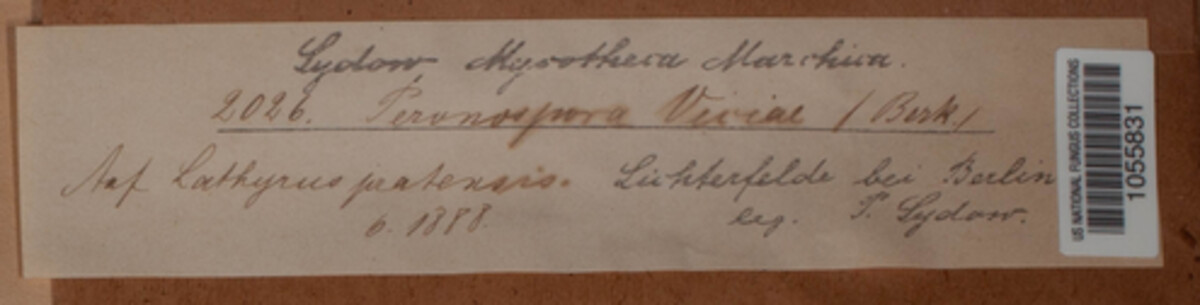 Sydow, Mycotheca Marchica.
2026. Peronospora Viciae (Berk.)
Auf Lathyrus pratensis. Lichterfelde bei Berlin
6. 1888. leg. P. Sydow.
US NATIONAL FUNGUS COLLECTIONS
1055831